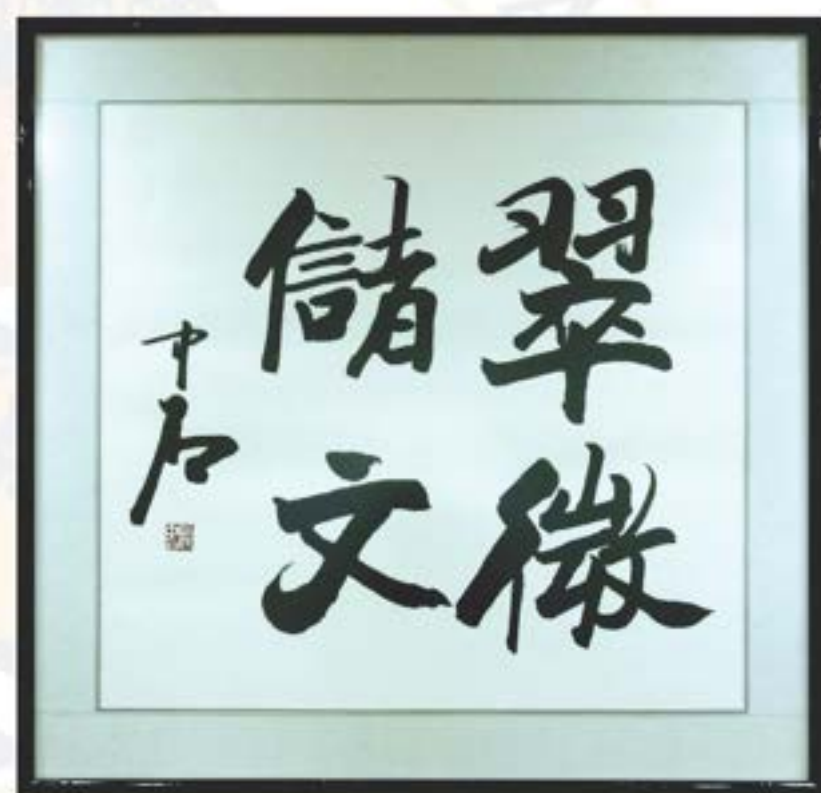 翠微
儲文
中石